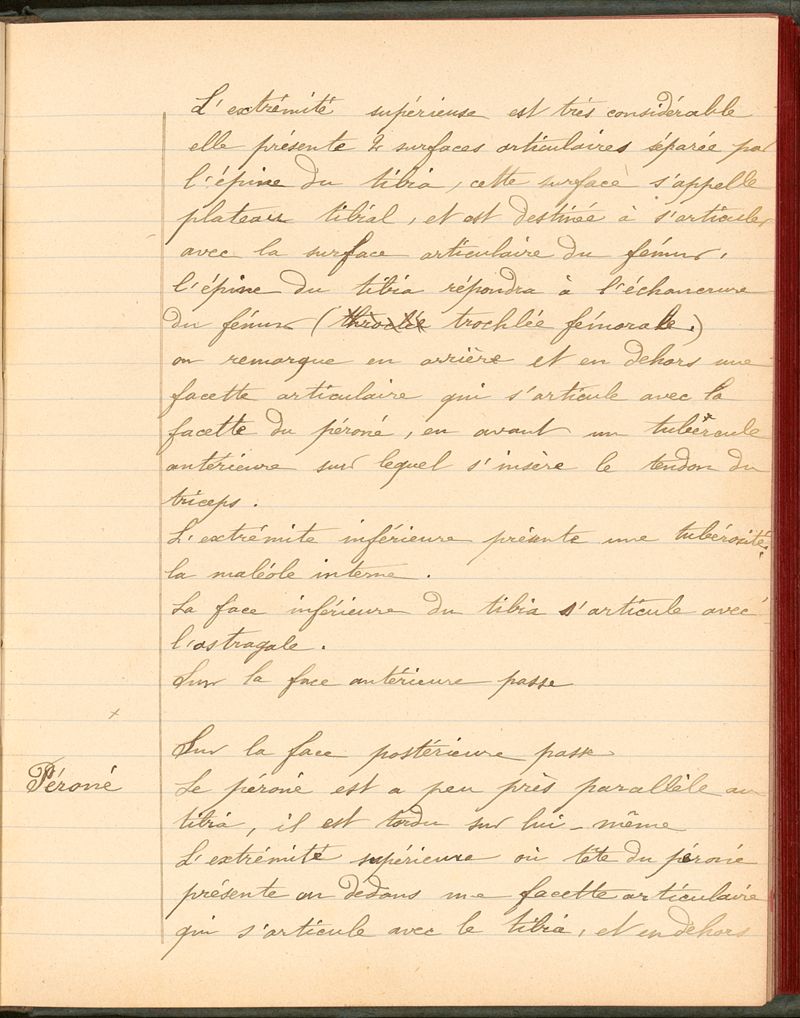 L'extrémité supérieuse est très considérable
elle présente 2 surfaces articulaires séparée par
l'épine du tibia, cette surface s'appelle
plateau tibial, et est destinée à s'articuler
avec la surface articulaire du fémur,
l'épine du tibia répondra à l'échancrure
du fémur ( trochlée fémorale.)
on remarque en arrière et en dehors une
facette articulaire qui s'articule avec la
facette du péroné, en avant un tubércule
antérieure sur lequel s'insère le tendon du
triceps.
L'extrémite inférieure présente une tubérosité:
la maléole interne.
La face inférieure du tibia s'articule avec
l'astragale.
Sur la face antérieure passe
Sur la face postérieure passe
Péroné
Le péroné est a peu près parallèle au
tibia, il est tordu sur lui-même
L'extrémité supérieure où tête du péroné
présente en dédans une facette articulaire
qui s'articule avec le tibia, et en dehors